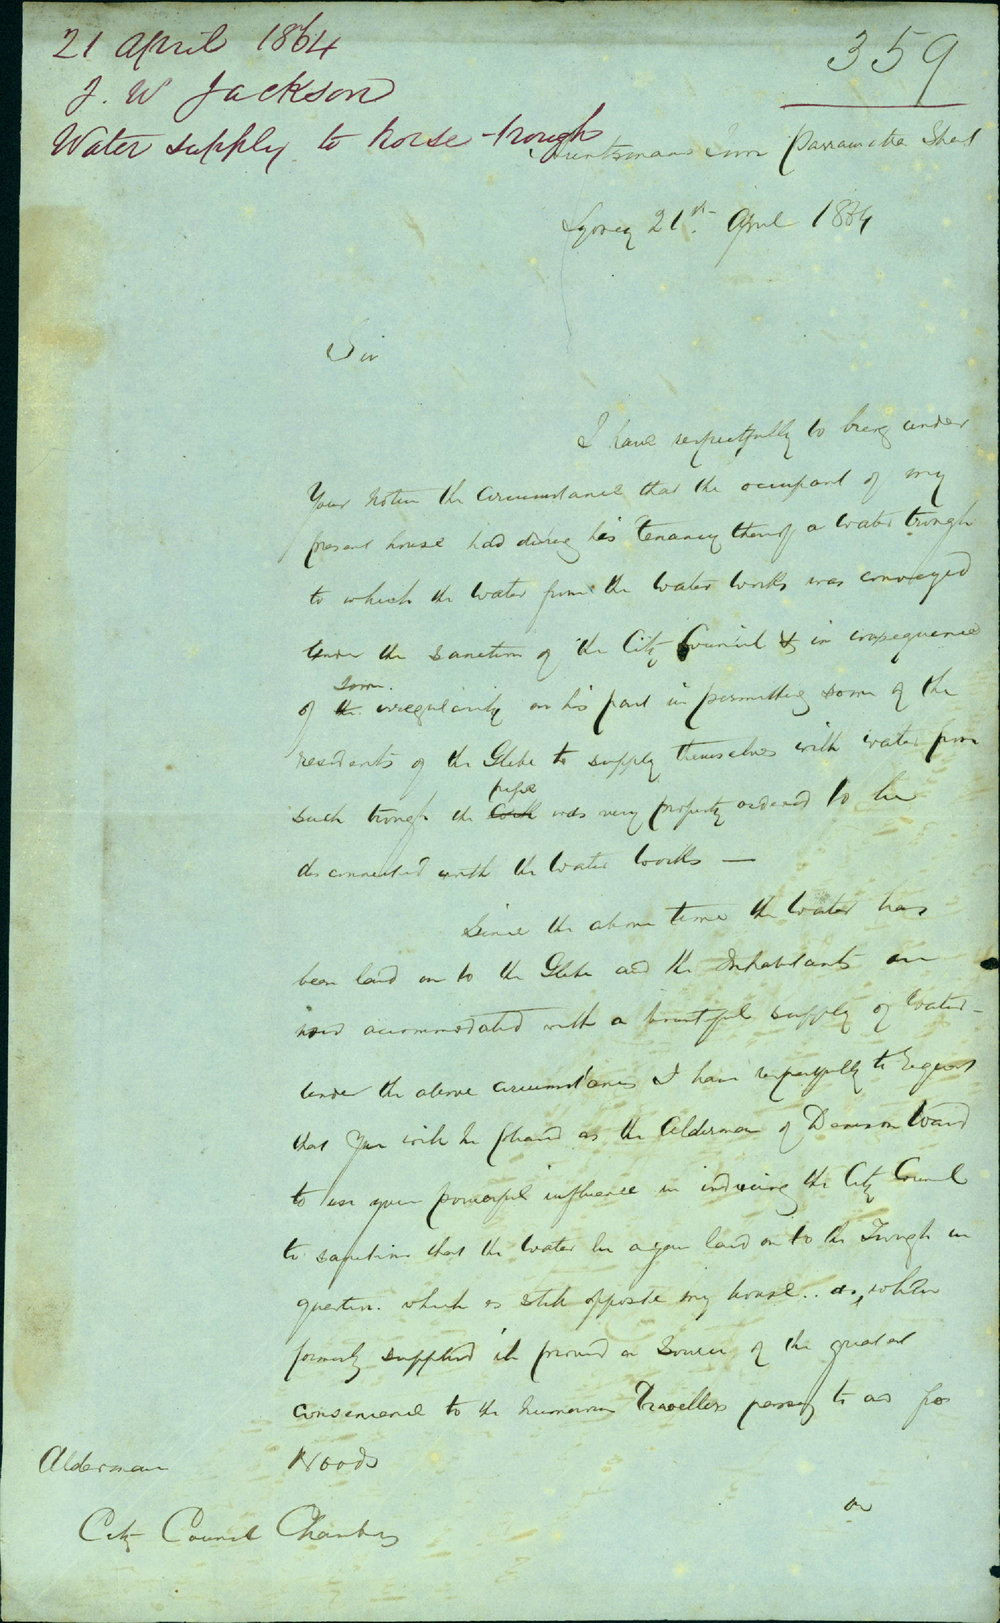 21 April 1864
J. W Jackson
Water supply to horse-trough
359
Huntsmans Inn Parramatta Street
Sydney 21st April 1864
Sir
I have respectfully to bring under
Your notice the circumstance that the occupant of my
present house had during his tenancy thereof a water trough
to which the water from the water works was conveyed
under the sanction of the City Council & in consequence
some
of the irregularity on his part in permitting some of the
residents of the Glebe to supply themselves with water from
pipe
such trough the was very properly ordered to be
disconnected with the Water Works —
Since the above time the Water has
been laid on to the Glebe and the Inhabitants are
now accommodated with a bountiful supply of Water -
Under the above circumstances I have respectfully to request
that you will be pleased as the Alderman of Denison Ward
to use your powerful influence in inducing the City Council
to sanction that the Water be again laid on to the Trough in
question. which is still opposite my house.. as, when
formerly supplied it proved a source of the greatest
convenience to the numerous Travellers passing to and fro
Alderman Woods
City Council Chambers
on